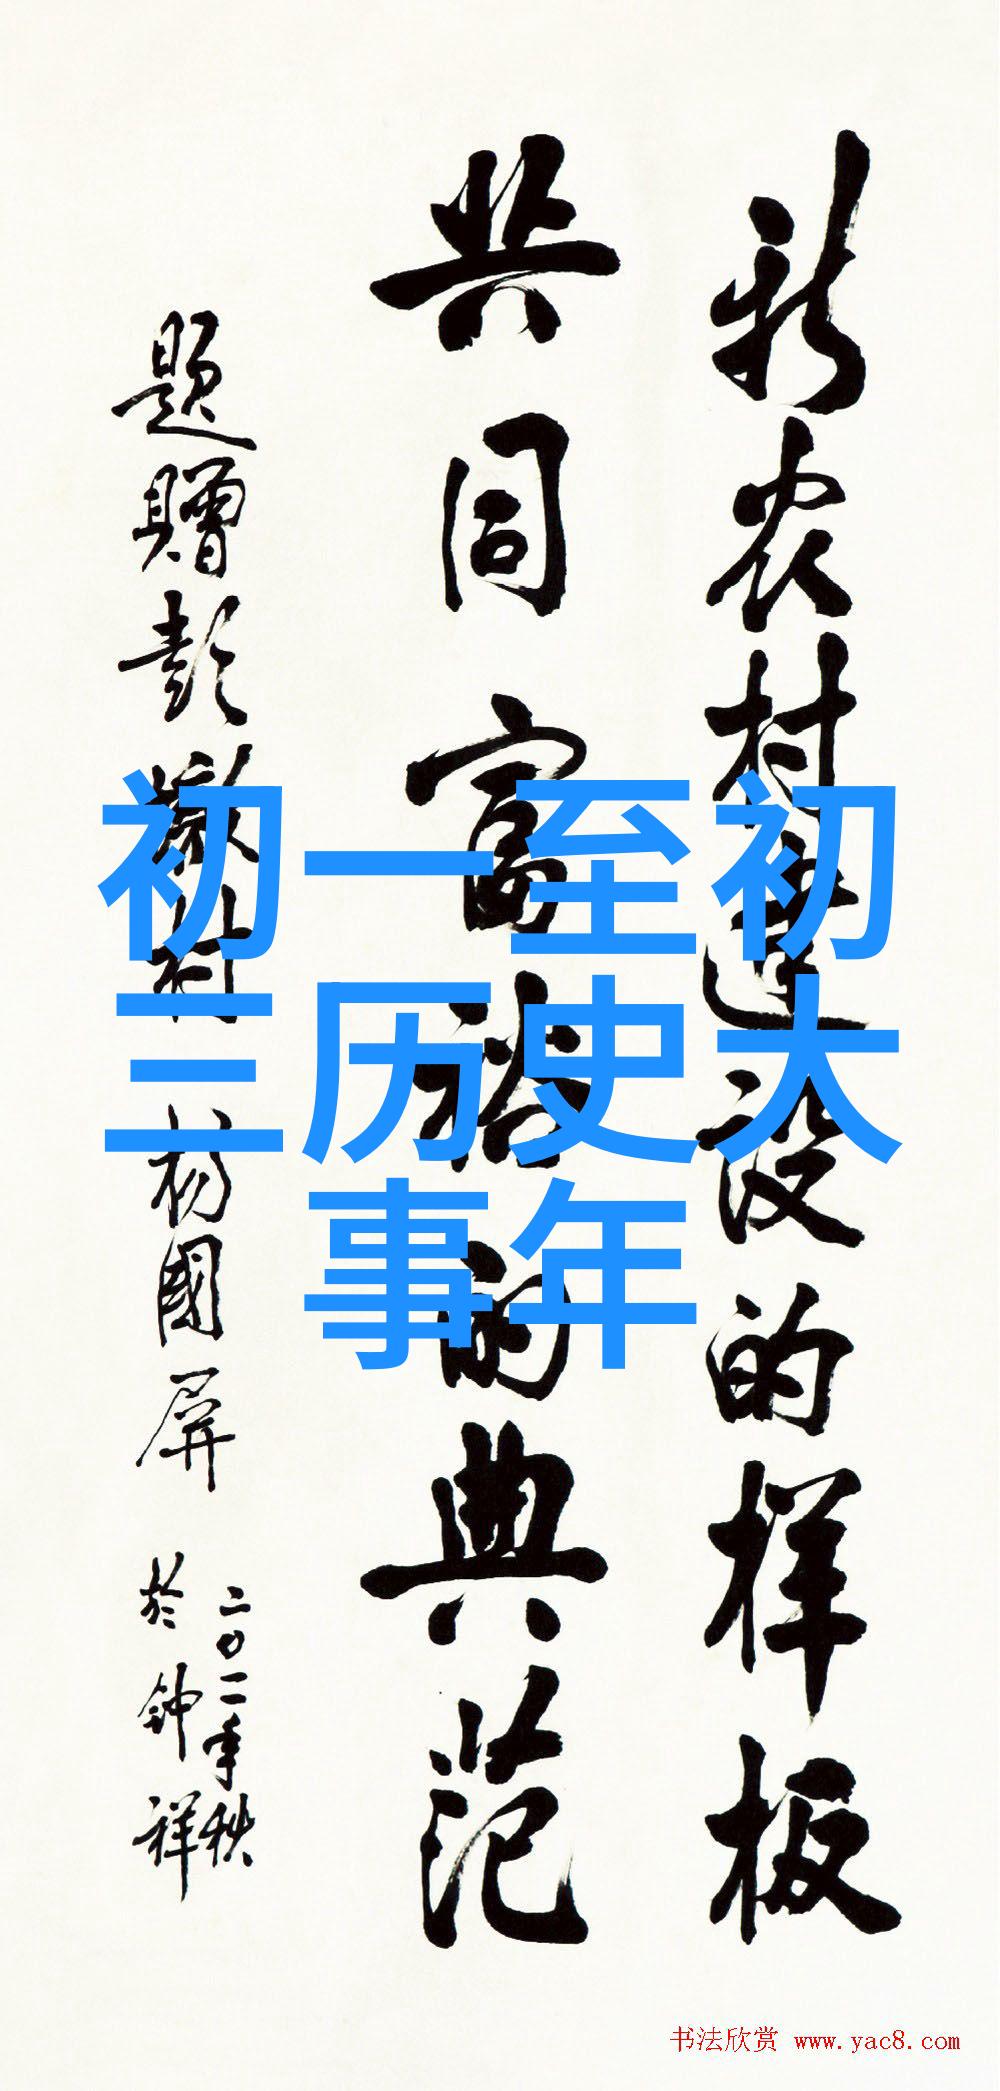 新农村建设的样板
共同富裕的典范
题赠彭墩村 杨国屏
二〇一一年秋
於钟祥
初一至初
三历史大
事年
书法欣赏 www.yac8.com